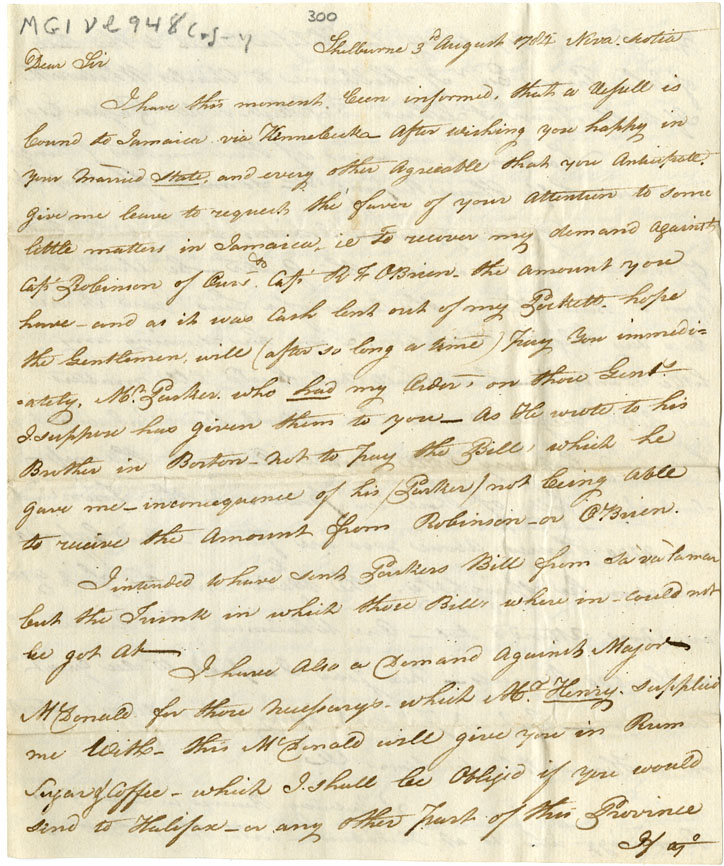 MG1 Vol 948
300
Shelburne 3d August 1784 Nova Scotia
Dear Sir
I have this moment been informed, that a Vessell is
bound to Jamaica via Kennebecka After wishing you happy in
your Married State, and every other Agreeable that you Anticipate.
Give me leave to request the favor of your Attention to some
little matters in Jamaica, ie To recover my demand against
Capt Robinson of Ours, & Capt R F O'Brien - the amount you
have - and as it was Cash lent out of my Pockett - hope
the Gentlemen, will (after so long a time) Pay You immedi-
=ately, Mr Parker. who had my Order, on those Gents
I suppose has given them to you - As He wrote to his
Brother in Boston - not to Pay the Bill, which he
gave me - inconsequence of his (Parker) not being Able
to receive the Amount from Robinson - or O'Brien.
I intended to have sent Parkers Bill from Savalamar
but the Trunk in which those Bills where in - could not
be got At -
I have Also a Demand Against Major
McDonald for those necessarys - which Mr Henry. supplied
me With - this McDonald will give you in Rum
Sugar & Coffee - which I shall be Obligd if you would
send to Halifax - or any other Part of this Province
If yo